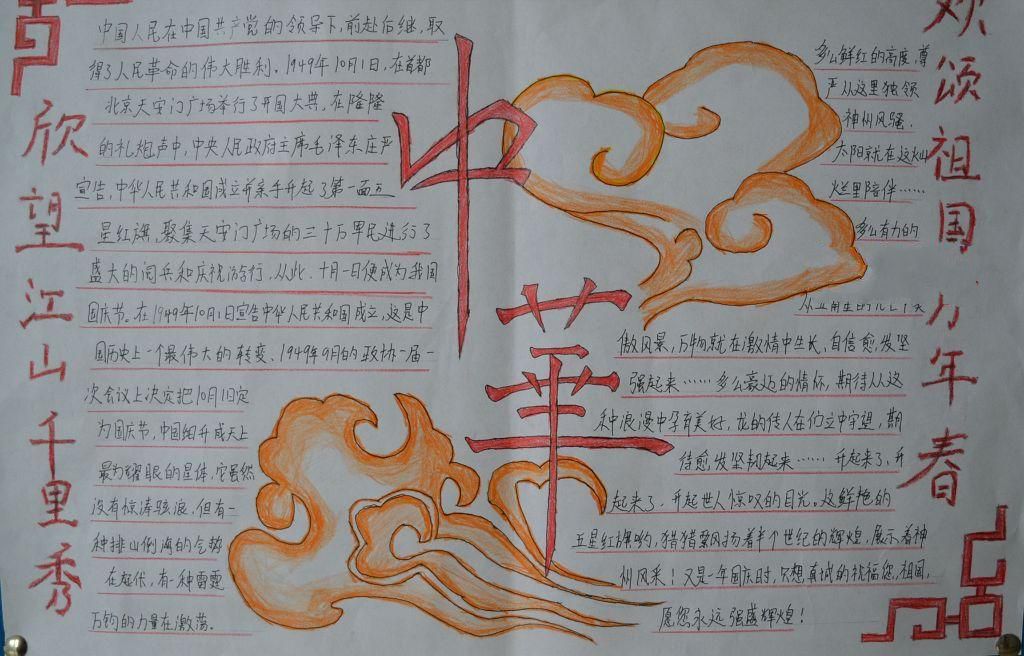 欣望江山千里秀
中国人民在中国共产党的领导下,前赴后继,取
得了人民革命的伟大胜利。1949年10月1日,在首都
北京天安门广场举行了开国大典,在隆隆
的礼炮声中,中央人民政府主席毛泽东庄严
宣告,中华人民共和国成立并亲手升起了第一面五
星红旗,聚集天安门广场的三十万军民进行了
盛大的阅兵和庆祝游行,从此、十月一日便成为我国
国庆节。在1949年10月1日宣告中华人民共和国成立,这是中
国历史上一个最伟大的转变、1949年9月的政协一届一
次会议上决定把10月1日定
为国庆节,中国细升成天上
最为耀眼的星体,它虽然
没有惊涛骇浪,但有一
种排山倒海的气势
在起伏,有一种雷霆
万钧的力量在激荡。
中華
多么鲜红的高度,尊
严从这里独领
神州风骚,
太阳就在这火山
烂里陪伴……
多么有力的
傲风景,万物就在激情中生长,自信愈,发坚
强起来……多么豪迈的情怀,期待从这
种浪漫中孕育美好,龙的传人在们立中守望,期
待愈,发坚韧起来……升起来了,升
起来了,升起世人惊叹的目光。这鲜艳的
五星红旗哟,猎猎飘扬着半个世纪的辉煌,展示着神
州风采!又是一年国庆时,只想真诚的祝福您,祖国,
愿您永远强盛辉煌!
欢颂祖国万年春